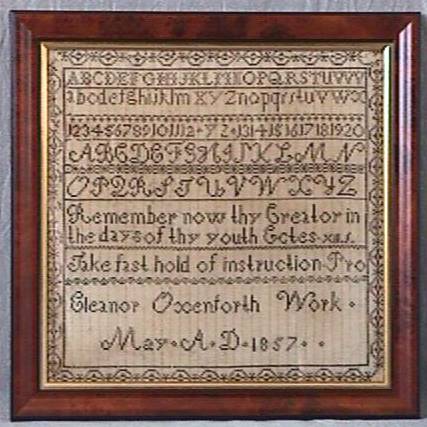 ABCDEFGHIJKLMNOPQRSTUVW
abcdefghijklm xyz nopqrstuvwx
1234567891011 12 · yz · 1314151617181920
ABCDEFGHIJKLMN
OPQRSTUVWXYZ
Remember now thy Creator in
the days of thy youth Ecles · XII.I.
Take fast hold of instruction Pro
Eleanor Oxenforth Work ·
May · A · D · 1857 · ·